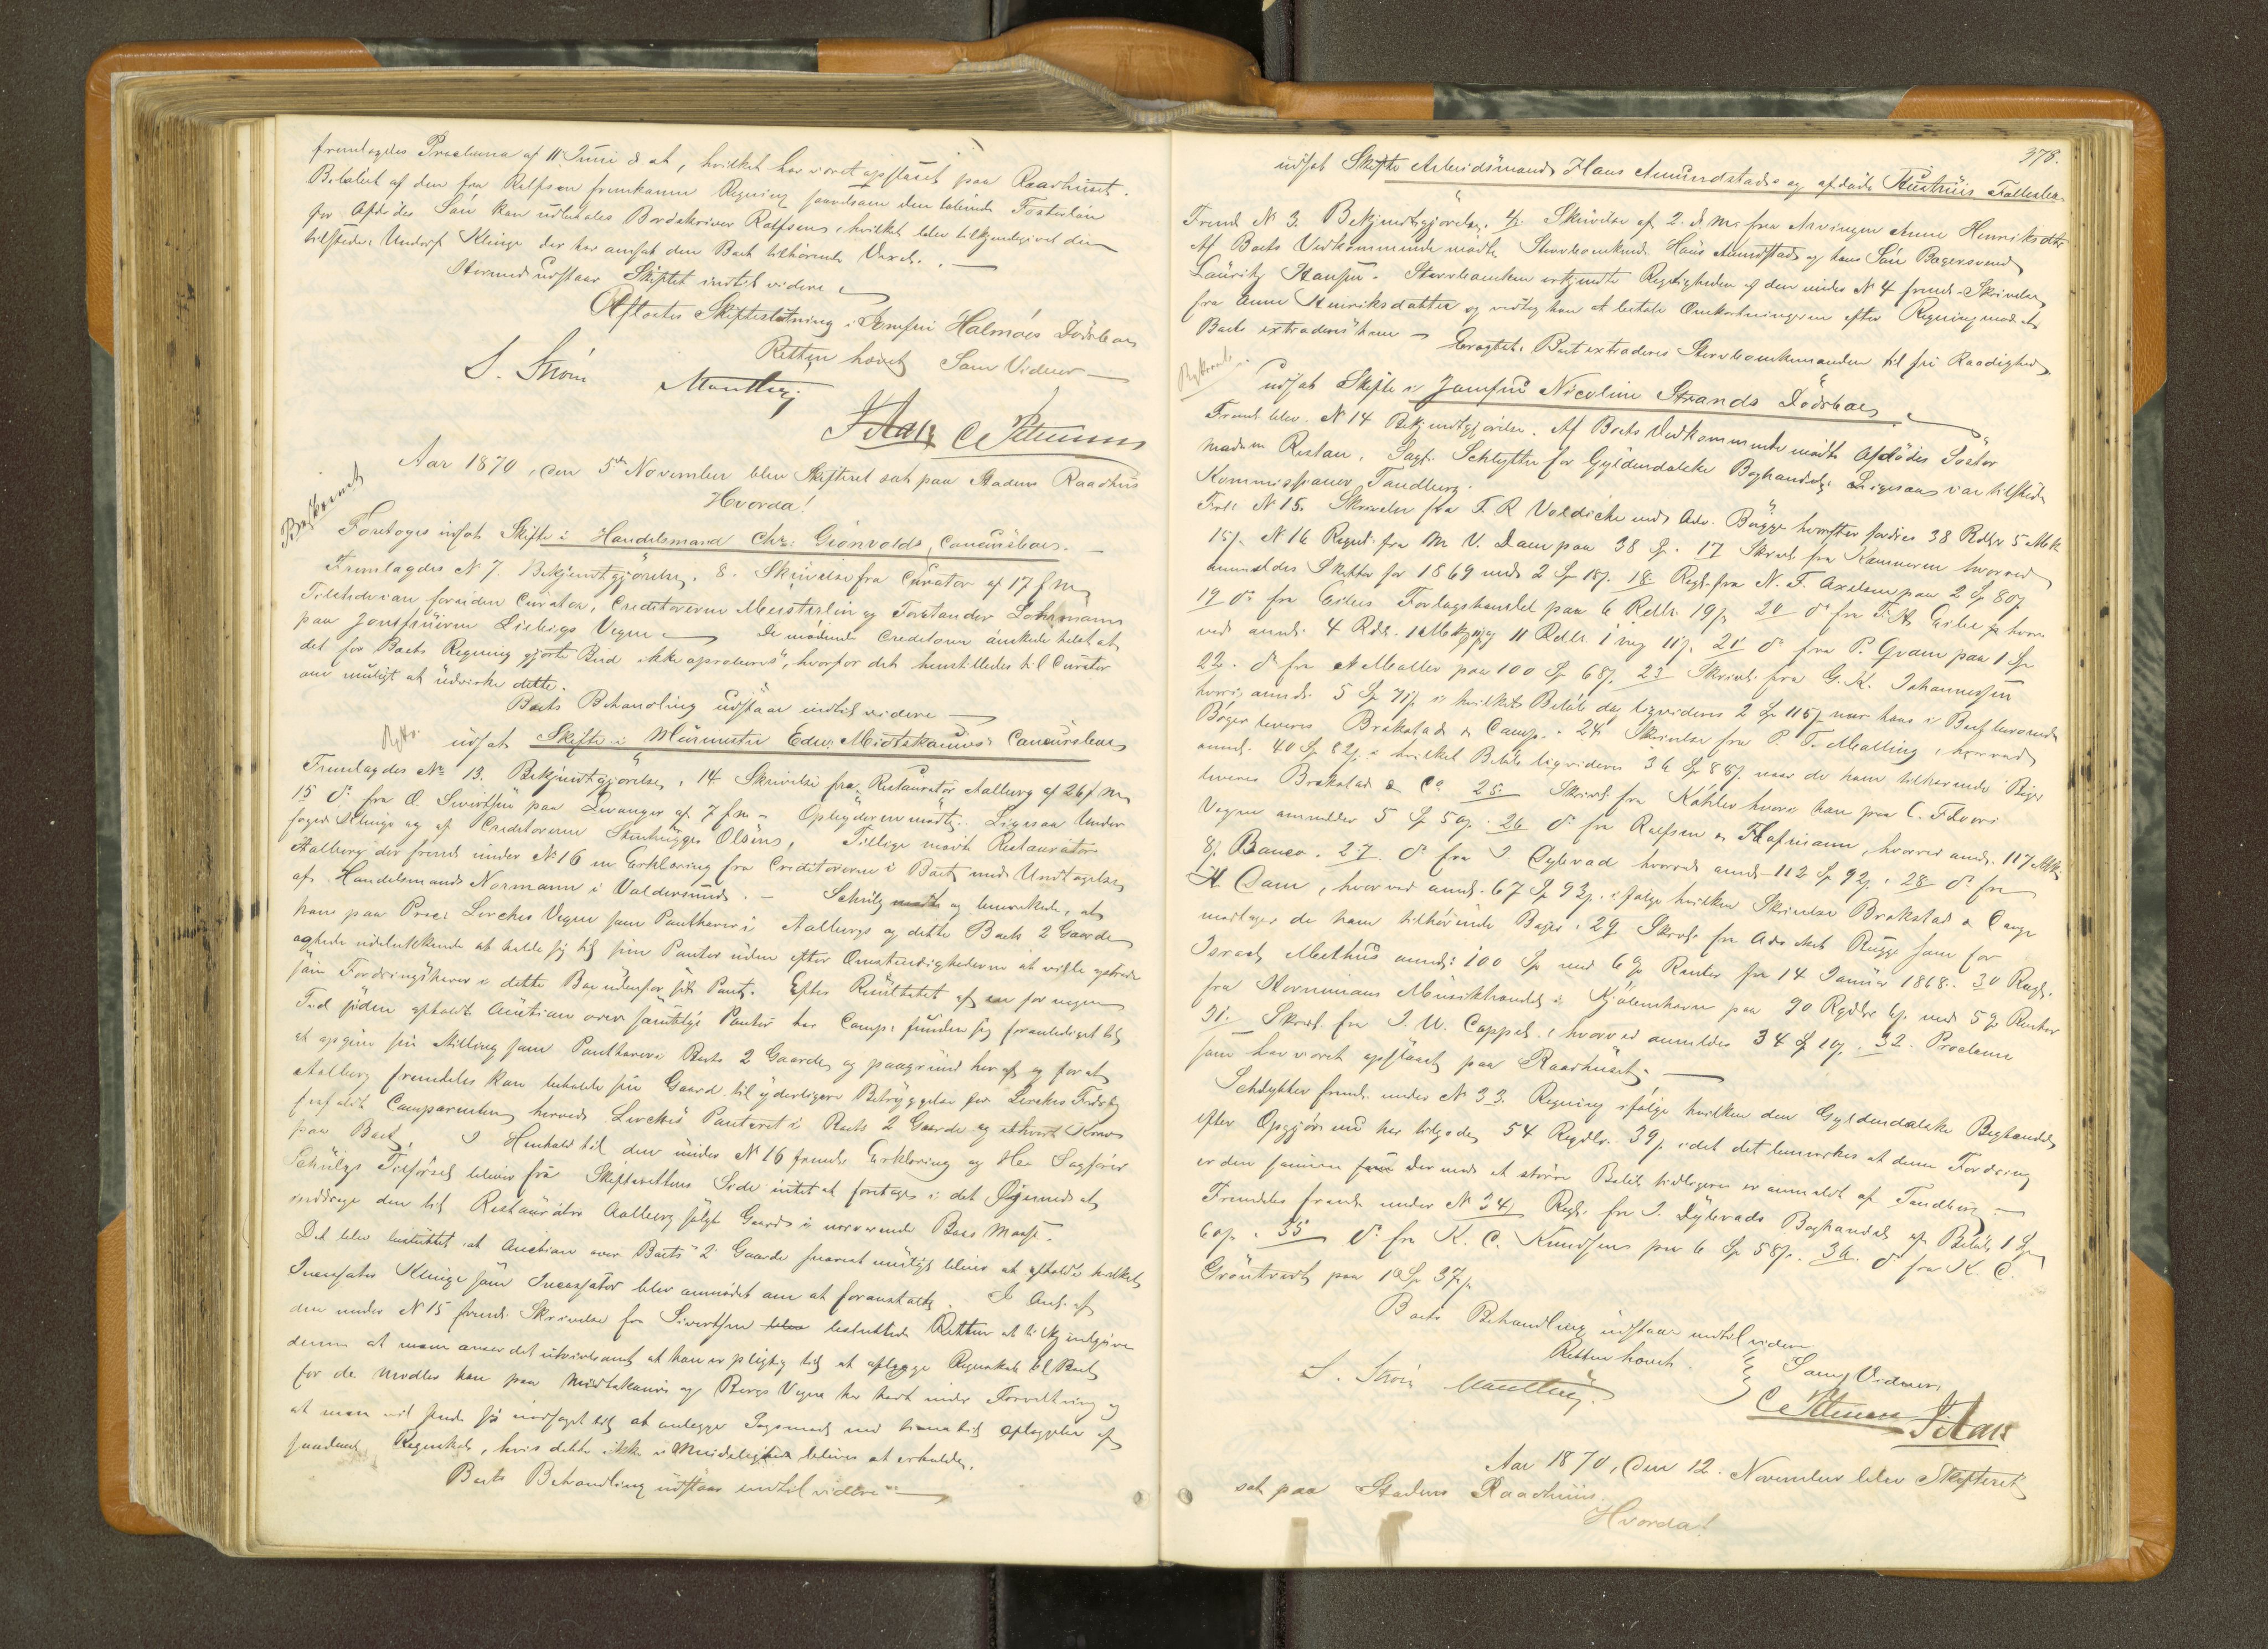 fremlagdes Proclama af 11 Juni d. A., hvilket har været opslaaet paa Raadhuset.
Beløbet af den fra Rolfsen fremkomne Regning saavelsom den løbende Fosterløn
for Afdødes Søn kan udbetales Bordskriver Rolfsen, hvilket blev tilkjendegivet den
tilstedev. Underf. Klinge der har ansat den Boet tilhørende
Hermed udstaar Skiftet indtil videre
Afloetes Skifteslutning i Jomfru Halmøes Dødsbo
Retten hævet Som Vidner
S. Strøm
C Petersen
Aar 1870, den 5te November blev Skifteret sat paa Stadens Raadhus
Hvorda!
Beskrevet
Foretoges udsat Skifte i Handelsmand Chr: Grønvolds Concursboe.
Fremlagdes N 7. Bekjendtgjørelse, 8. Skrivelse fra Curator af 17 f. M.
Tilstede var foruden Curator, Creditorerne Meisterlin og Forstander Lohrmann
paa Jomfruerne Liebigs Vegne De mødende Creditorer ønskede helst at
det for Boets Regning gjorte Bud ikke aproberes, hvorfor det henstilledes til Curator
om muligt at udvirke dette.
Boets Behandling udstaar indtil videre
udsat Skifte i Muurmester Edv. Midtskauns Concursboe
Fremlagdes No 13. Bekjendtgjørelse, 14 Skrivelse fra Restauratør Aalberg af 26 f. M.
15 do fra O. Sivertsen paa Levanger af 7 f. M. Opbyderen mødte. Ligesaa Under
foged Klinge og af Creditorerne Stenhugger Olsens, Tillige mødte Restauratør
Aalberg der freml. under No 16 en Erklæring fra Creditorerne i Boet med Undtagelse
af Handelsmand Normann i Valdersund. Schulz mødte og bemærkede, at
han paa Proc. Lerches Vegne som Panthaver i Aalbergs og dette Boets 2 Gaarde
agtede udelukkende at holde sig til sin Panter uden efter Omstændighederne at ville optræde
som Fordringshaver i dette Bo udenfor sit Pant. Efter Resultatet af en for nogen
Tid siden afholdt Auction over samtlige Panter har Comp. funden sig foranlediget til
at opgive sin Stilling som Panthaver i Boets 2 Gaarde og paagrund heraf og for at
Aalberg fremdeles kan beholde sin Gaard til yderligere Betryggelse for Lerches Fordring
frafaldt Comparenten herved Lerches Panteret i Boets 2 Gaarde og ethvert Krav
paa Boet. I Henhold til den under No 16 freml. Erklæring og Hr. Sagfører
Schulzs Tilførsel bliver fra Skifterettens Side intet at foretages i det Øiemed at
inddrage den til Restauratør Aalberg solgte Gaard i nærværende Boes Masse.
Det blev besluttet at Auction over Boets 2 Gaarde snarest muligt bliver at afholde hvilket
Incassator Klinge som Incassator blev anmodet om at foranstalte. I Anl. af
den under No 15 freml. Skrivelse fra Sivertsen blev besluttede Retten at tilkjendegive
denne at man anser det utvivlsomt at han er pligtig til at aflægge Regnskab til Boet
for de Midler han paa Midtskauns og Bergs Vegne har havt under Forvaltning og
at man vil finde sig nødsaget til at anlægge Sagsmaal med Hensyn til Aflæggelse af
saadant Regnskab, hvis dette ikke i Mindelighed bliver at erholde.
Boets Behandling udstaar indtil videre
378.
udsat Skifte Arbeidsmand Hans Amundstads og afdøde Hustrues Fællesbo.
Freml. N 3. Bekjendtgjørelse, 4. Skrivelse af 2. d. M. fra Arvingen Anne Henriksdtr
Af Boets Vedkommende mødte Stervboenkem. Hans Amundstad og hans Søn Bagersvend
Lauritz Hansen. Stervboenkem. erkjendte Rigtigheden af den under N 4 freml. Skrivelse
fra Anne Henriksdatter og vedtog han at betale Omkostningerne efter Regning mod at
Boet extraderes ham – Eragtet. Boet extraderes Stervboenkemanden til fri Raadighed
udsat Skifte i Jomfru Nicoline Strands Dødsboe
Freml. blev N 14 Bekjendtgjørelse. Af Boets Vedkommende mødte Afdødes Søster
Madam Ristau, Sagf. Schlytter for Gyldendalske Boghandel. Ligesaa var tilstede
Kommissionær Tandberg.
Freml. N 15. Skrivelse fra F. R. Voldicke ved Adv. Bugge hvorefter fordres 38 Rdlr 5 Mk
15ſ. N 16 Regnl. fra M V. Dam paa 38 Sp. 17 Skrivl. fra Kæmneren hvorved
anmeldes Skatten for 1869 med 2 Sp 18ſ. 18 Regl. fra N. F. Axelsen paa 2 Sp 80ſ
19 do fra Eibes Forlagshandel paa 6 Rdlr. 19ſ. 20 do fra F. A. Eibe hvor
ved anmeld. 4 Rdlr. 1 Mk og 11 Rdlr. 1 mk 11ſ. 21 do fra P. Qvam paa 1 Sp
22. do fra A Møller paa 100 Sp 68ſ. 23 Skrivl. fra G. K. Johannessen
hvori anmeld. 5 Sp 71ſ i hvilket Beløb dog liqvideres 2 Sp 115ſ naar hans i Boet beroende
Bøger leveres Brækstad & Comp. 24 Skrivelse fra P. T. Malling, hvorved
anmeld. 40 Sp 82ſ i hvilket Beløb liqvideres 36 Sp 88ſ naar de ham tilhørende Bøger
leveres Brækstad & Co 25 Skrivl. fra Køhler hvori han paa C. Floors
Vegne anmelder 5 Sp 50ſ. 26 do fra Rolfsen & Hofmann, hvorved anmeld. 117 Mk
8ſ. Banco. 27. do fra J. Dybwad hvorved anmeld. 112 Sp 92ſ. 28 do fra
A Dam, hvorved anmeld. 67 Sp 93ſ. ifølge hvilken Skrivelse Brækstad & Comp
modtager de ham tilhørende Bøger. 29 Skrivl. fra Adv. Bugge som for
Israel Mæthus anmeld. 100 Sp med 6% Renter fra 14 Januar 1868. 30 Regl.
fra Hornemans Musikhandel i Kjøbenhavn paa 90 Rgdlr 6ſ. med 5% Renter
31. Skrivl. fra J. W. Cappel, hvorved anmeldes 34 Sp 10ſ. 32. Proclama
som har været opslaaet paa Raadhuset.
Schlytter freml. under N 33. Regning ifølge hvilken den Gyldendalske Boghandel
efter Opgjør nu har tilgode 54 Rgdlr. 39ſ. idet det bemærkes at denne Fordring
er den samme som der med et større Beløb tidligere er anmeldt af Tandberg
Fremdeles freml. under N 34 Regl. fra J. Dybwads Boghandel af Beløb 1 Sp
60ſ. 35 do fra K. C. Knudsens paa 6 Sp 58ſ. 36. do fra K. C.
Grøntvedt paa 10 Sp 37ſ.
Boets Behandling udstaar indtil videre
Retten hævet. Som Vidner
S. Strøm
C Petersen
Aar 1870, den 12. November blev Skifteret
sat paa Stadens Raadhuus
Hvorda!